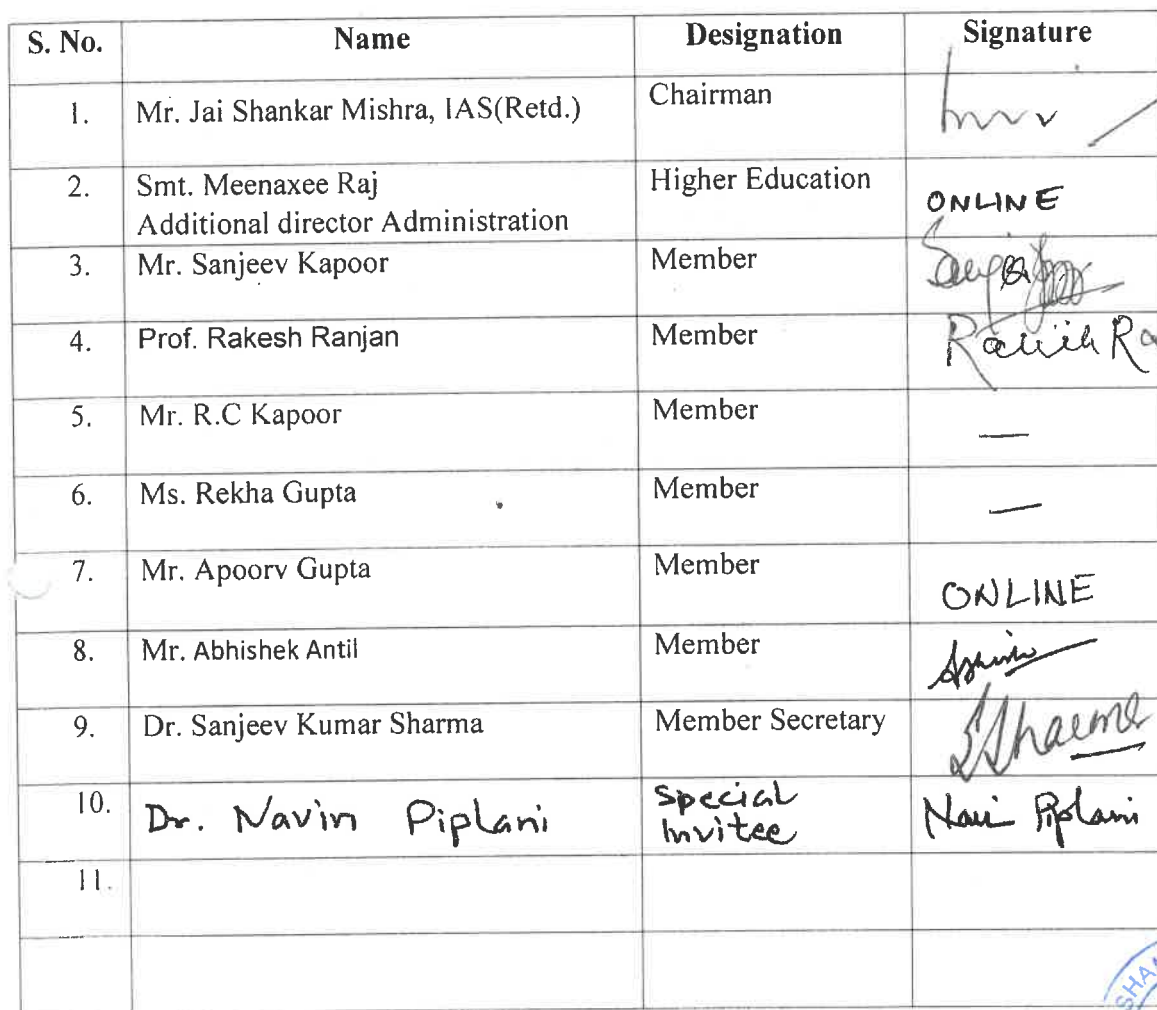 S. No. Name Designation Signature
1. Mr. Jai Shankar Mishra, IAS(Retd.) Chairman
2. Smt. Meenaxee Raj Higher Education
Additional director Administration ONLINE
3. Mr. Sanjeev Kapoor Member
4. Prof. Rakesh Ranjan Member
5. Mr. R.C Kapoor Member —
6. Ms. Rekha Gupta Member —
7. Mr. Apoorv Gupta Member ONLINE
8. Mr. Abhishek Antil Member
9. Dr. Sanjeev Kumar Sharma Member Secretary SSharma
10. Dr. Navin Piplani Special
Invitee Navin Piplani
11.
SHAN